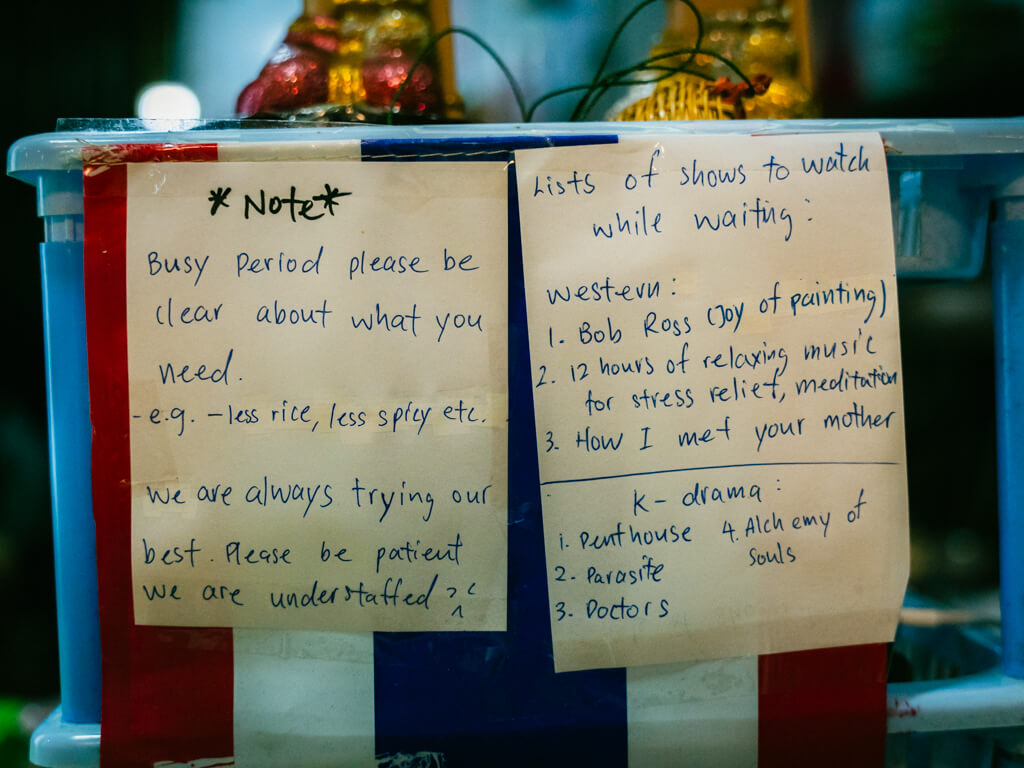 *Note*
Busy Period please be
clear about what you
need.
- e.g. - less rice, less spicy etc.
We are always trying our
best. Please be patient
We are understaffed
Lists of shows to watch
while waiting:
western:
1. Bob Ross (Joy of painting)
2. 12 hours of relaxing music
for stress relief, meditation
3. How I met your mother
K-drama:
1. Penthouse
2. Parasite
3. Doctors
4. Alchemy of
souls